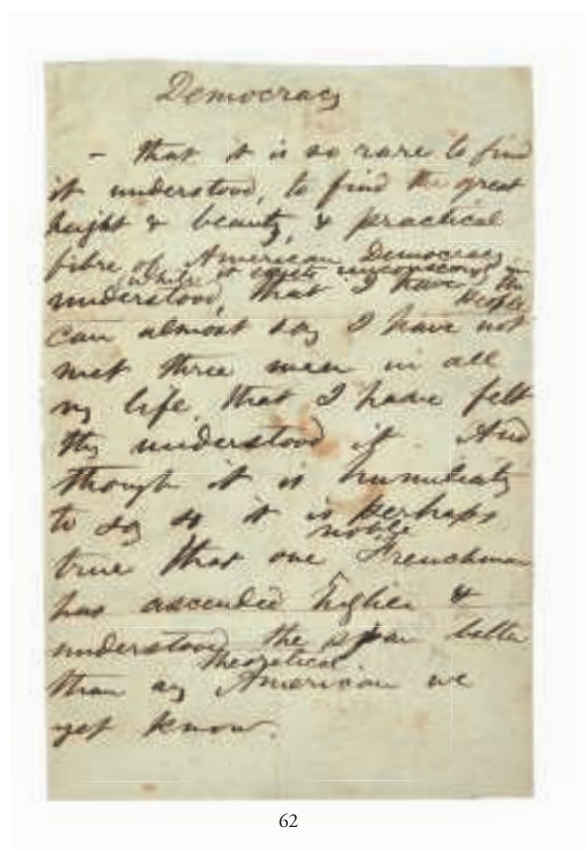 Democracy
– that it is so rare to find
it understood, to find the great
height & beauty, & practical
fibre of American Democracy
(while it exists unconsciously in the people
understood, that I have
can almost say I have not
met three men in all
my life, that I have felt
thy understood it. And
though it is humiliating
to say so it is perhaps
noble
true that one Frenchman
has ascended higher &
understood the span better
theoretical
than any American we
yet know.
62